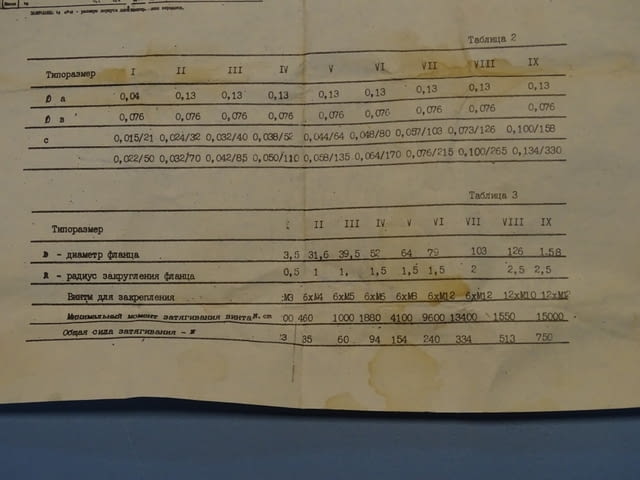 Таблица 2
Типоразмер I II III IV V VI VII VIII IX
а 0,04 0,13 0,13 0,13 0,13 0,13 0,13 0,13 0,13
в 0,076 0,076 0,076 0,076 0,076 0,076 0,076 0,076 0,076
с 0,015/21 0,024/32 0,032/40 0,038/52 0,044/64 0,048/80 0,057/103 0,073/126 0,100/158
0,022/50 0,032/70 0,042/85 0,050/110 0,058/135 0,064/170 0,076/215 0,100/265 0,134/330
Таблица 3
Типоразмер II III IV V VI VII VIII IX
D - диаметр фланца 3,5 31,6 39,5 52 64 79 103 126 1.58
R - радиус закругления фланца 0,5 1 1, 1,5 1,5 1,5 2 2,5 2,5
Винты для закрепления М3 6хМ4 6хМ5 6хМ6 6хМ8 6хМ12 6хМ12 12хМ10 12хМ12
Минимальный момент затягивания винта Н.cm 00 460 1000 1880 4100 9600 13400 1550 15000
Общая сила затягивания - 3 35 60 94 154 240 334 513 750